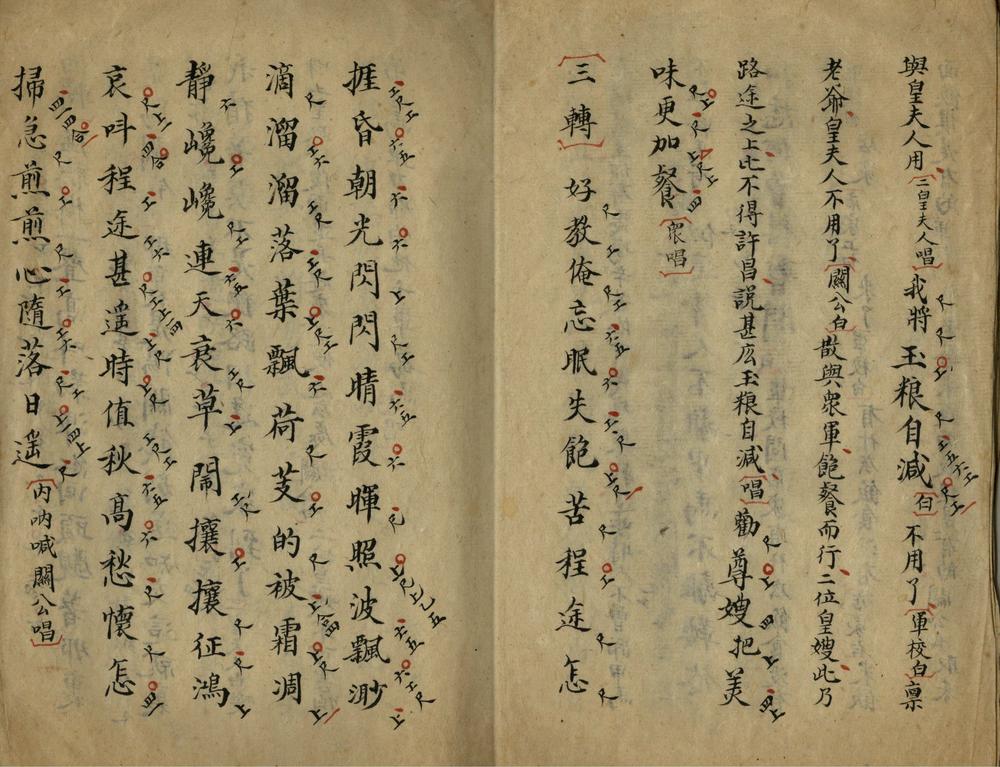 與皇夫人用〔二皇夫人唱〕我將玉粮自減〔白〕不用了〔軍校白〕稟
老爺皇夫人不用了〔關公白〕散與衆軍飽餐而行二位皇嫂此乃
路途之上比不得許昌説甚庅玉粮自減〔唱〕勸尊嫂把美
味更加餐〔衆唱〕
〔三轉〕好教俺忘眠失飽苦程途怎
捱昏朝光閃閃晴霞暉照波飄渺
滴溜溜落葉飄荷芰的被霜凋
靜巉巉連天衰草鬧攘攘征鴻
哀呌程途甚遥時值秋高愁懷怎
掃急煎煎心隨落日遥〔内吶喊關公唱〕